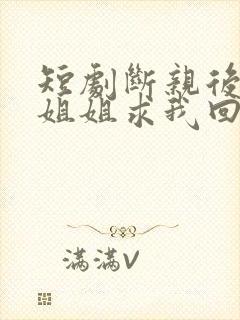 短劇斷親後
姐姐求我回
滿滿V